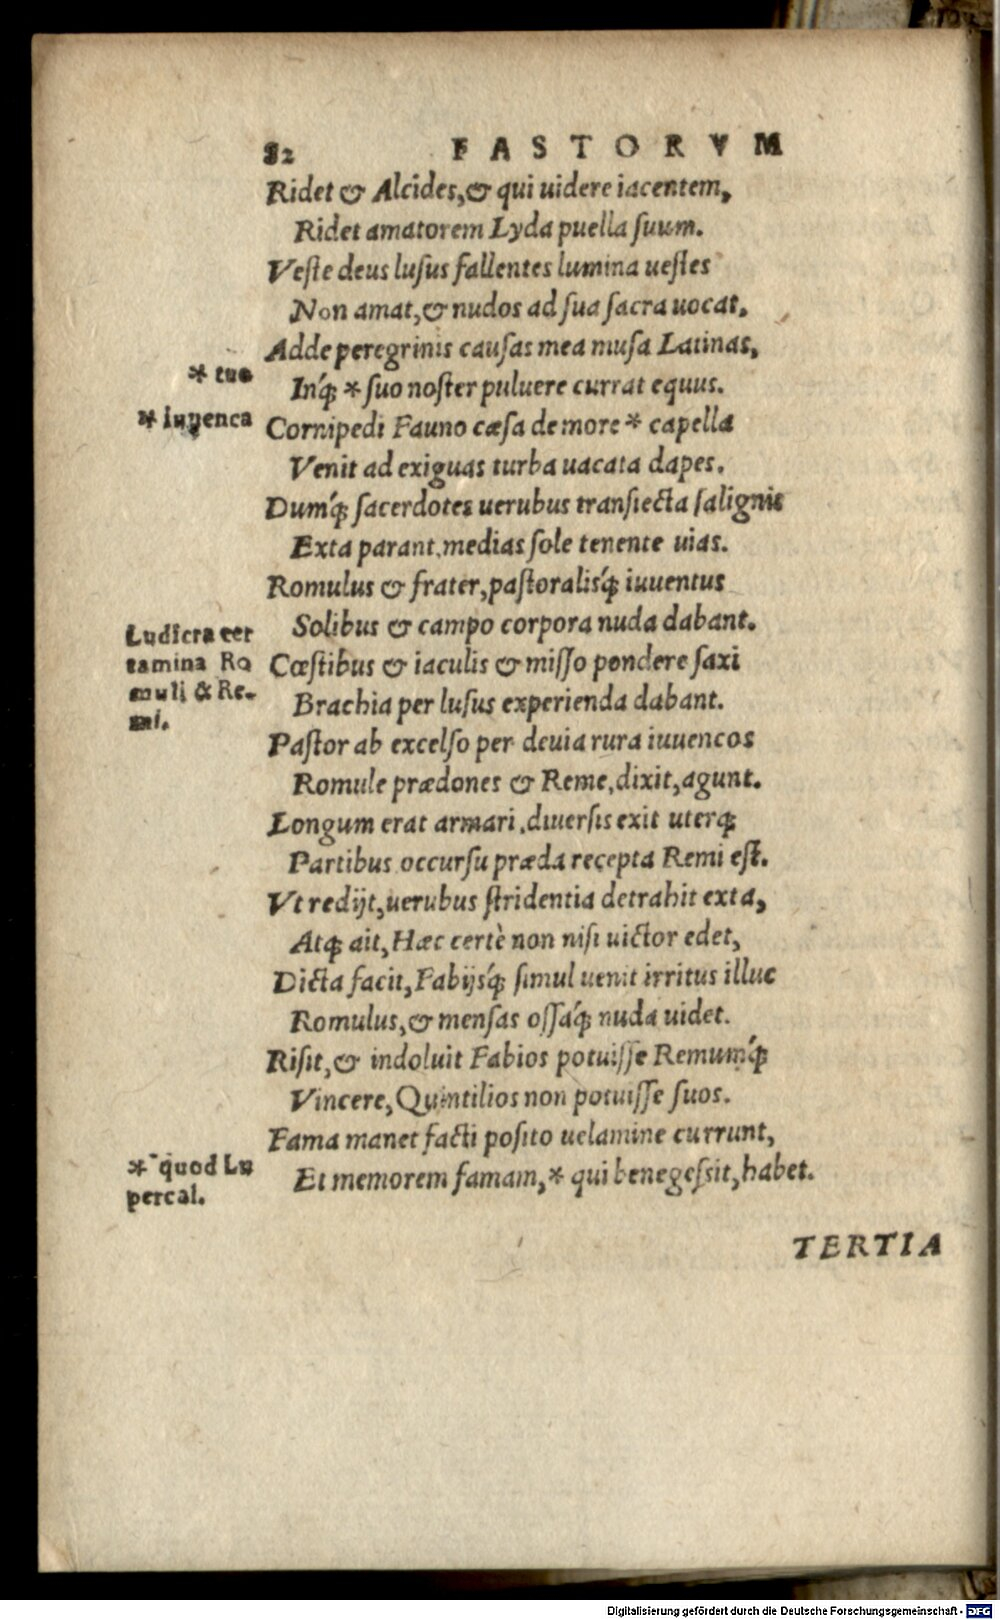 82 FASTORVM
Ridet & Alcides,& qui uidere iacentem,
Ridet amatorem Lyda puella ſuum.
Veſte deus luſus fallentes lumina ueſtes
Non amat,& nudos ad ſua ſacra uocat.
Adde peregrinis cauſas mea muſa Latinas,
* tuo
Inq́; * ſuo noſter puluere currat equus.
* iuuenca
Cornipedi Fauno cæſa de more * capella
Venit ad exiguas turba uacata dapes.
Dumq́; ſacerdotes uerubus tranſiecta ſalignis
Exta parant, medias ſole tenente uias.
Romulus & frater,paſtoralisq́; iuuentus
Solibus & campo corpora nuda dabant.
Ludicra cer
tamina Ro
muli & Re-
mi.
Cœſtibus & iaculis & miſſo pondere ſaxi
Brachia per luſus experienda dabant.
Paſtor ab excelſo per deuia rura iuuencos
Romule prædones & Reme,dixit,agunt.
Longum erat armari,diuerſis exit uterq;
Partibus occurſu præda recepta Remi eſt.
Vt redijt,uerubus ſtridentia detrahit exta,
Atq; ait, Hæc certè non niſi uictor edet,
Dicta facit, Fabijsq́; ſimul uenit irritus illuc
Romulus,& menſas oſſaq́; nuda uidet.
Riſit,& indoluit Fabios potuiſſe Remumq́;
Vincere, Quintilios non potuiſſe ſuos.
Fama manet facti poſito uelamine currunt,
* quod Lu
percal.
Et memorem famam,* qui bene geſsit,habet.
TERTIA
Digitalisierung gefördert durch die Deutsche Forschungsgemeinschaft - DFG